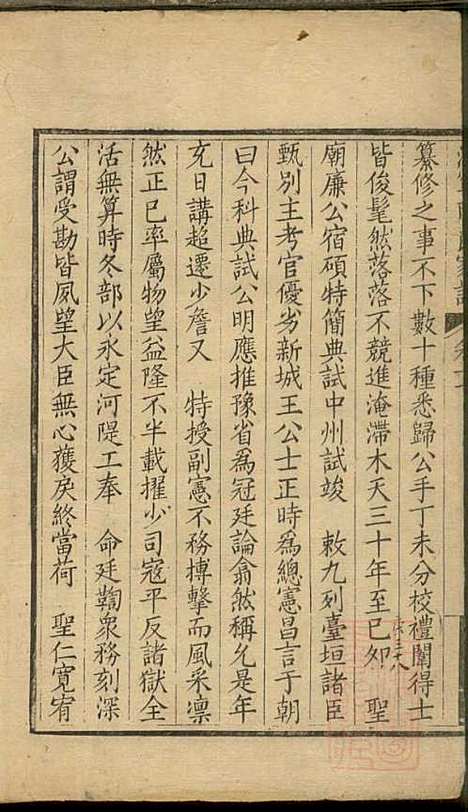 纂修之事不下數十種悉歸公手丁未分校禮闈得士
皆俊髦然落落不競進淹滯木天三十年至己卯 聖
廟廉公宿碩特簡典試中州試竣 敕九列臺垣諸臣
甄別主考官優劣新城王公士正時為總憲昌言于朝
曰今科典試公明應推豫省為冠廷論翕然稱允是年
充日講超遷少詹又 特授副憲不務搏擊而風采凜
然正已率屬物望益隆不半載擢少司寇平反諸獄全
活無算時冬部以永定河隄工奉 命廷鞫衆務刻深
公謂受勘皆夙望大臣無心獲戾終當荷 聖仁寬宥